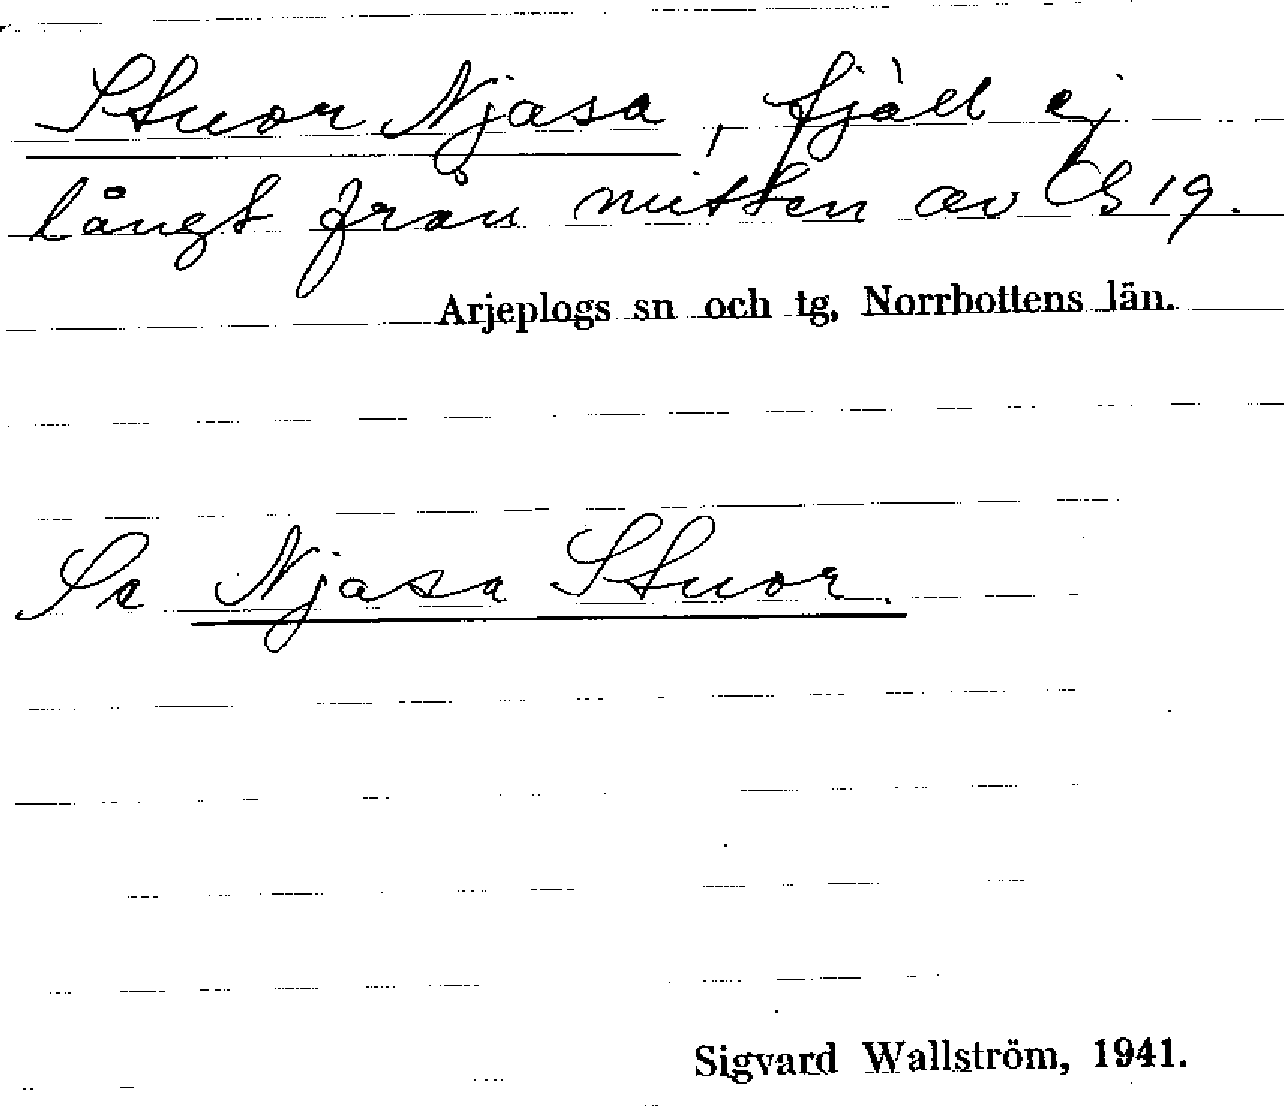 Stuor Njasa, fjäll ej
långt från mitten av G 19.
Arjeplogs sn och tg, Norrbottens län.
Se Njasa Stuor.
Sigvard Wallström, 1941.